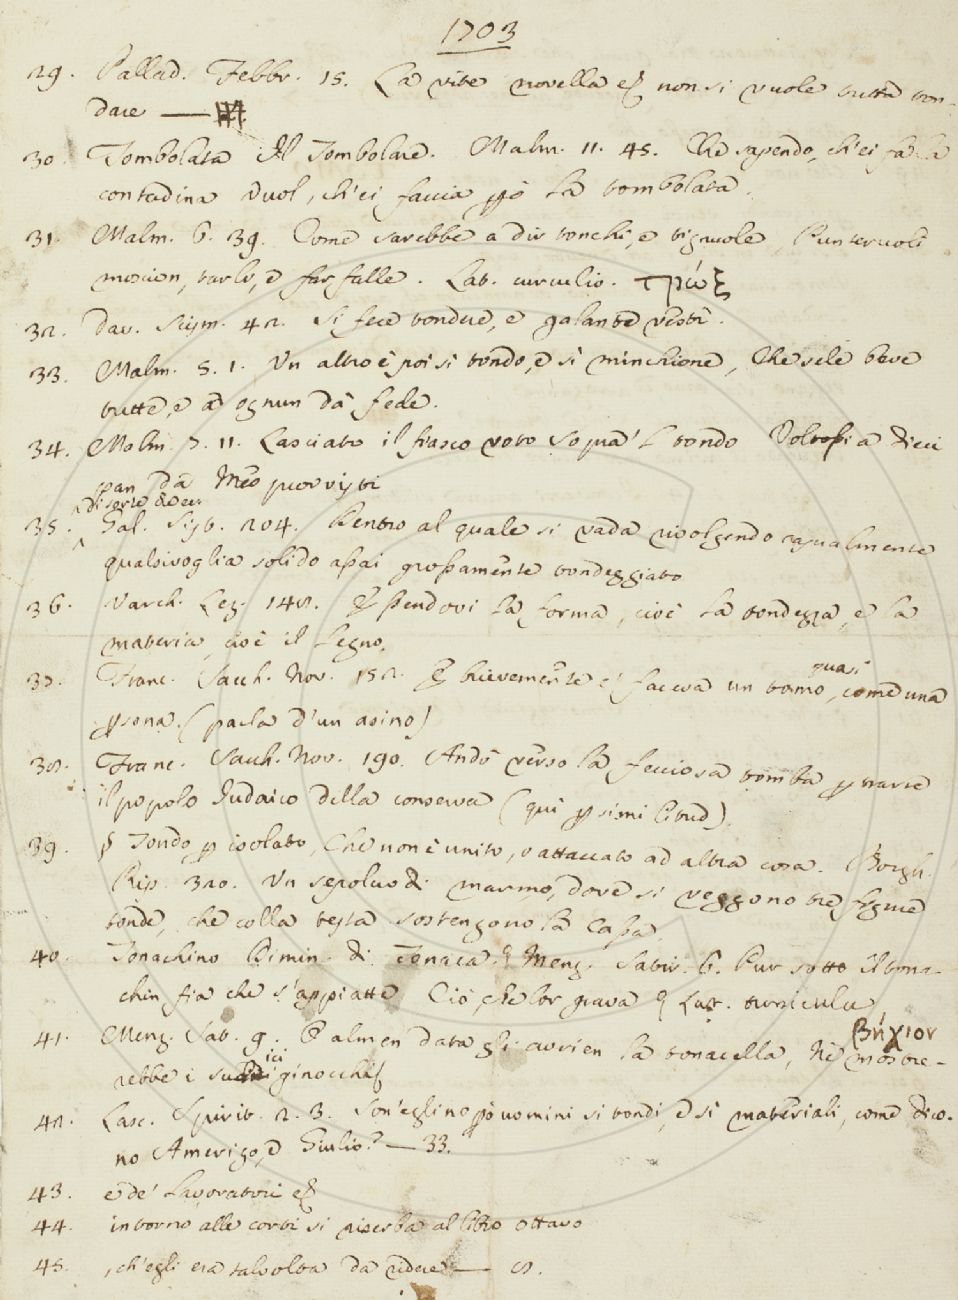 1703
29. Pallad. Febbr. 15. La vite novella non si vuole tutta ton-
dare —
30. Tombolata Il Tombolare. Malm. 11. 45. Che sapendo, ch'ei fa la
contadina Vuol, ch'ei faccia però la tombolata.
31. Malm. 6. 39. Come sarebbe a dir tonchi, e tignuole, Punteruoli
moscion, tarli, e farfalle. Lat. curculio. τρώξ
32. Dav. Scism. 42. Si fece tondere, e galante vestì.
33. Malm. 5. 1. Un altro è poi sì tondo, e sì minchione, Che se le beve
tutte, e ad ognun dà fede.
34. Malm. 7. 11. Lasciato il fiasco voto sopra 'l tondo Voltossi a dieci
pan da Meo provvisti
di serie
35. Gal. Sist. 204. Dentro al quale si vada rivolgendo egualmente
qualsivoglia solido assai grossamente tondeggiato
36. Varch. Lez. 148. essendovi la forma, cioè la tondezza, e la
materia, cioè il Legno.
quasi
37. Franc. Sacch. Nov. 152. E brievemente e' faceva un tomo, come una
psona. (parla d'un asino)
38. Franc. Sacch. Nov. 190. Andò verso la fecciosa tomba p trarre
il popolo Judaico della conserva (qui p similitud).
39. § Tondo p isolato, Che non è unito, o attaccato ad altra cosa. Borgh.
Rip. 320. Un sepolcro di marmo, dove si veggono tre figure
tonde, che colla testa sostengono la Cassa.
40. Tonachino Dimin. di Tonaca. Menz. Satir. 6. Pur sotto il tona-
chin fia che s'appiatte Ciò, che lor grava Lat. tunicula
41. Menz. Sat. 9. O almen data gli avrien la tonacella, Nè mostre-
βήχιον
rebbe i sudici ginocchi
42. Lasc. Spirit. 2. 3. Son'eglino però uomini sì tondi, e sì materiali, come dico-
no Amerigo, e Giulio? — 33.
43. e de' Lavoratori
44. intorno alle corti si riserba al libro ottavo
45. , ch'egli era talvolta da ridere — 8.